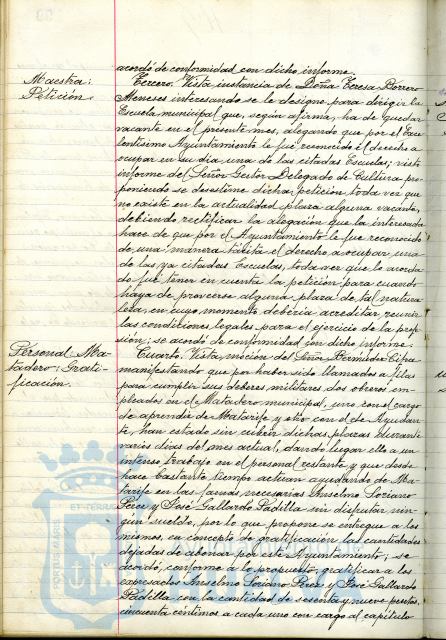 acordó de conformidad con dicho informe.
Maestra:
Petición.
Tercero. Vista instancia de Doña Teresa Borrero
Meneses interesando se le designe para dirigir la
Escuela municipal que, según afirma, ha de quedar
vacante en el presente mes, alegando que por el Exce-
lentísimo Ayuntamiento le fué reconocido el derecho a
ocupar en su día una de las citadas Escuelas; visto
informe del Señor Gestor Delegado de Cultura pro-
poniendo se desestime dicha petición, toda vez que
no existe en la actualidad plaza alguna vacante,
debiendo rectificar la alegación que la interesada
hace de que por el Ayuntamiento le fué reconocido
de una manera tácita el derecho a ocupar una
de las ya citadas Escuelas, toda vez que lo acorda-
do fué tener en cuenta la petición para cuando
haya de proveerse alguna plaza de tal natura
leza, en cuyo momento debería acreditar reunir
las condiciones legales para el ejercicio de la profe-
sión; se acordó de conformidad con dicho informe.
Personal Ma-
tadero: Grati-
ficación.
Cuarto. Vista moción del Señor Bermúdez
manifestando que por haber sido llamados a filas
para cumplir sus deberes militares dos obreros em-
pleados en el Matadero municipal, uno con el cargo
de aprendiz de Matarife y otro con el de Ayudan-
te, han estado sin cubrir dichas plazas durante
varios días del mes actual, dando lugar ello a un
intenso trabajo en el personal restante y que desde
hace bastante tiempo actúan ayudando de Ma-
tarife en las faenas necesarias Anselmo Soriano
Pérez y José Gallardo Padilla sin disfrutar nin-
gún sueldo, por lo que propone se entregue a los
mismos, en concepto de gratificación las cantidades
dejadas de abonar por este Ayuntamiento; se
acordó, conforme a lo propuesto, gratificar a los
expresados Anselmo Soriano Pérez y José Gallardo
Padilla con la cantidad de sesenta y nueve pesetas,
cincuenta céntimos a cada uno con cargo al capítulo